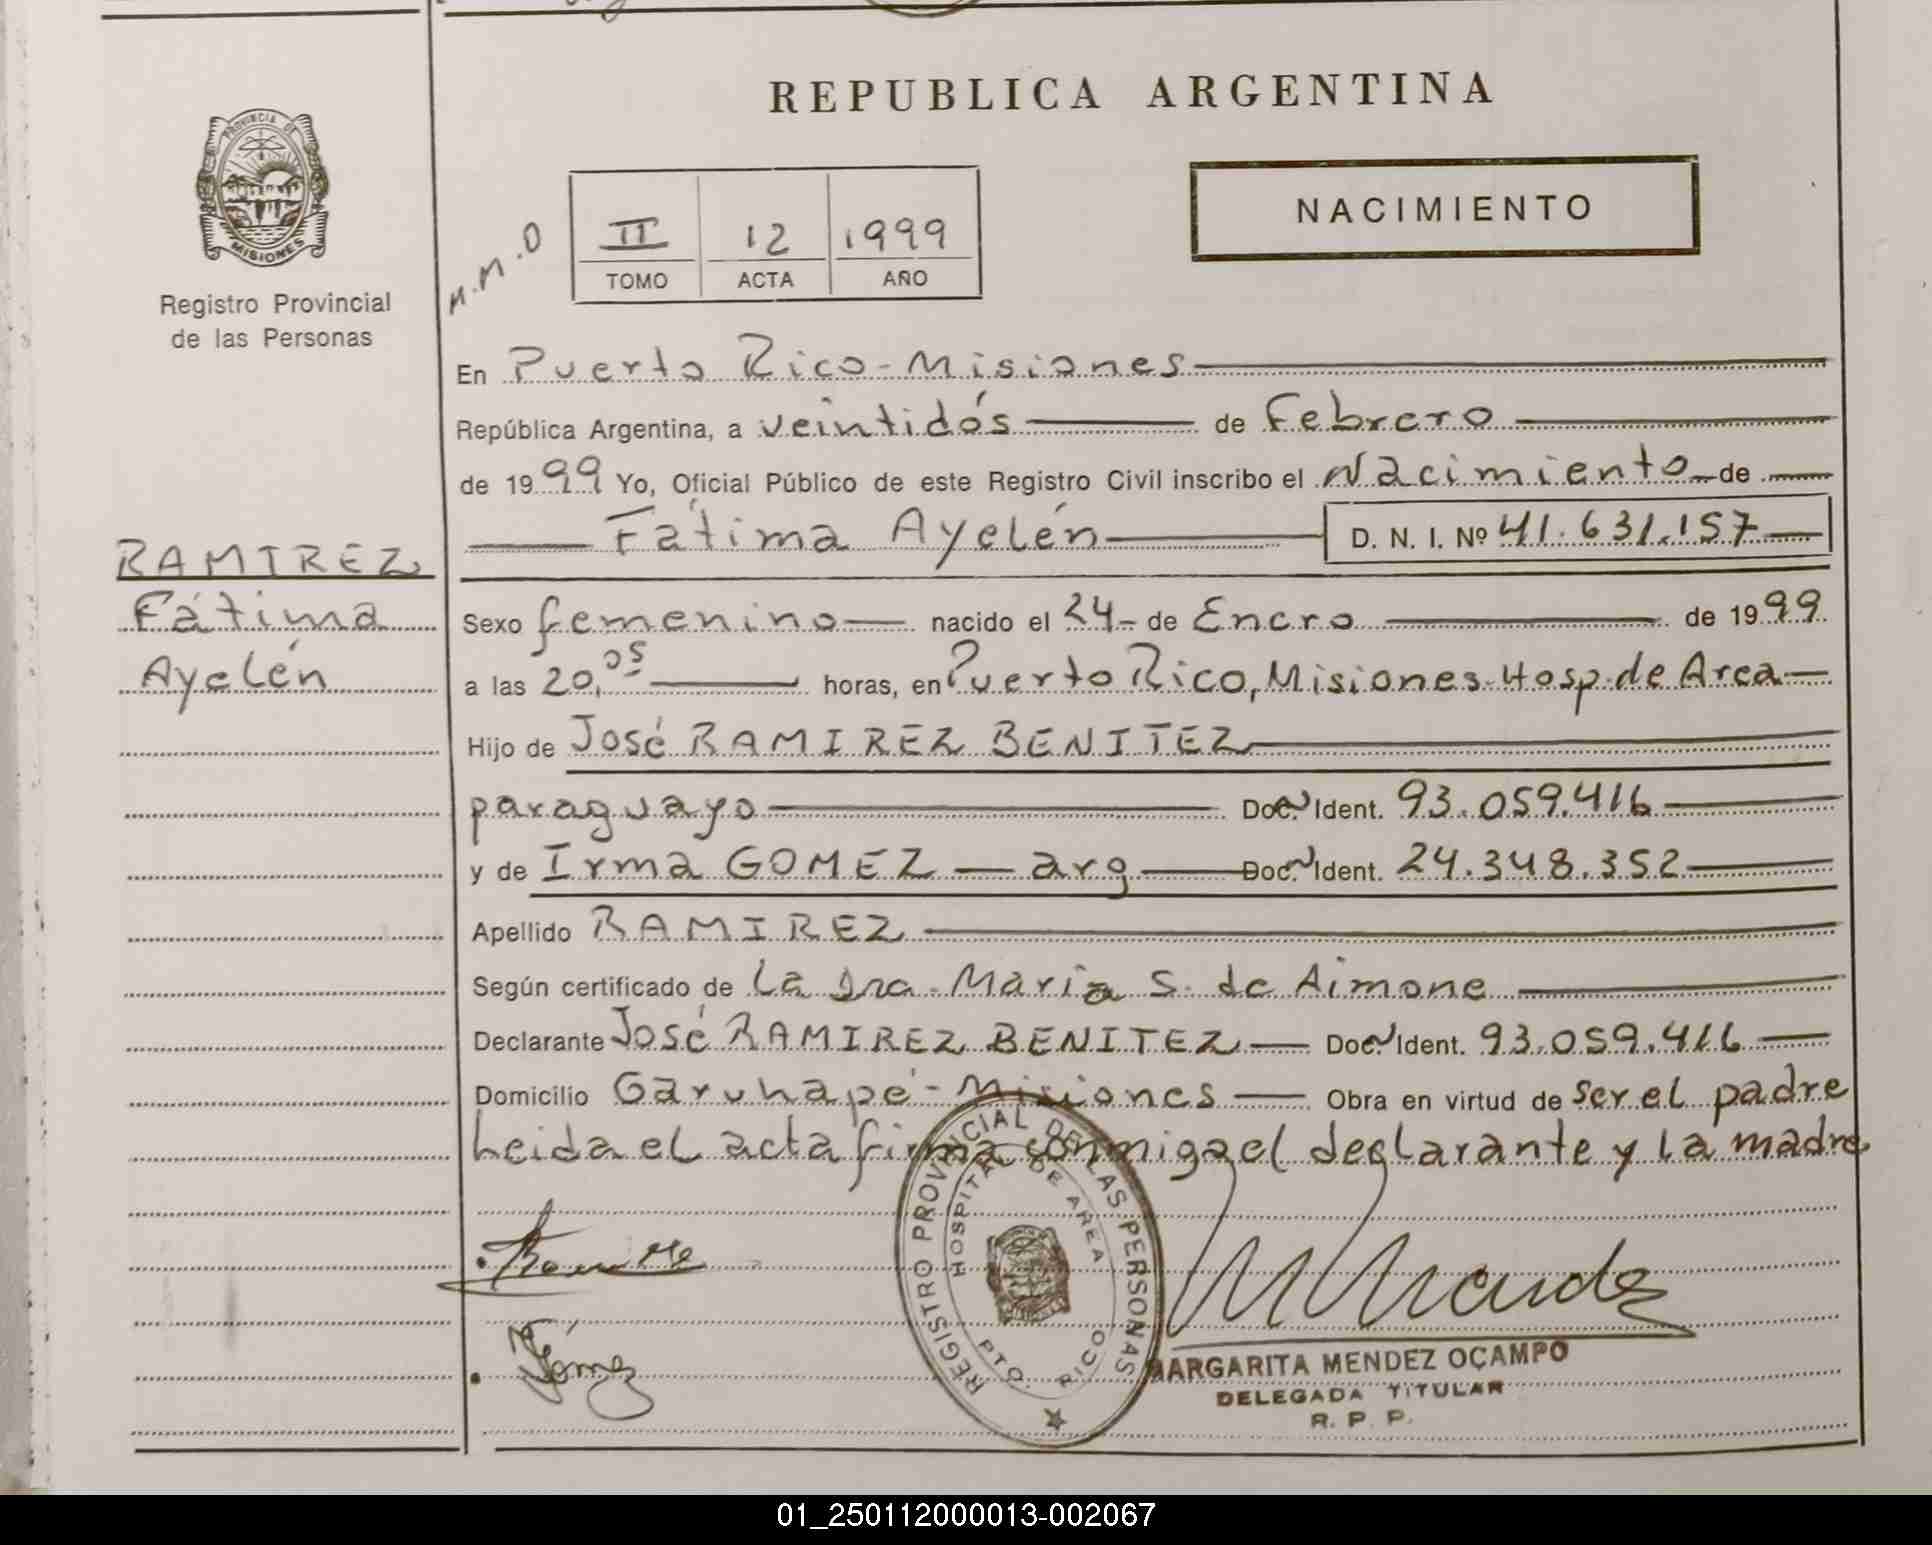 REPUBLICA ARGENTINA
PROVINCIA DE MISIONES
Registro Provincial
de las Personas
NACIMIENTO
M.M.O
II 12 1999
TOMO ACTA AÑO
En Puerto Rico - Misiones
República Argentina, a veintidós de Febrero
de 1999 Yo, Oficial Público de este Registro Civil inscribo el Nacimiento de
Fátima Ayelén D. N. I. Nº 41.631.157
RAMIREZ
Fátima
Ayelén
Sexo femenino nacido el 24 de Enero de 1999
a las 20,05 horas, en Puerto Rico, Misiones-Hosp. de Area
Hijo de José RAMIREZ BENITEZ
paraguayo Doc. Ident. 93.059.416
y de Irma GOMEZ — arg Doc. Ident. 24.348.352
Apellido RAMIREZ
Según certificado de La Dra. Maria S. de Aimone
Declarante José RAMIREZ BENITEZ Doc. Ident. 93.059.416
Domicilio Garuhapé - Misiones Obra en virtud de ser el padre
Leida el acta firma conmigo el declarante y la madre
REGISTRO PROVINCIAL DE LAS PERSONAS
HOSPITAL DE AREA
PTO. RICO
Gómez
MARGARITA MENDEZ OCAMPO
DELEGADA TITULAR
R. P. P.
01_250112000013-002067